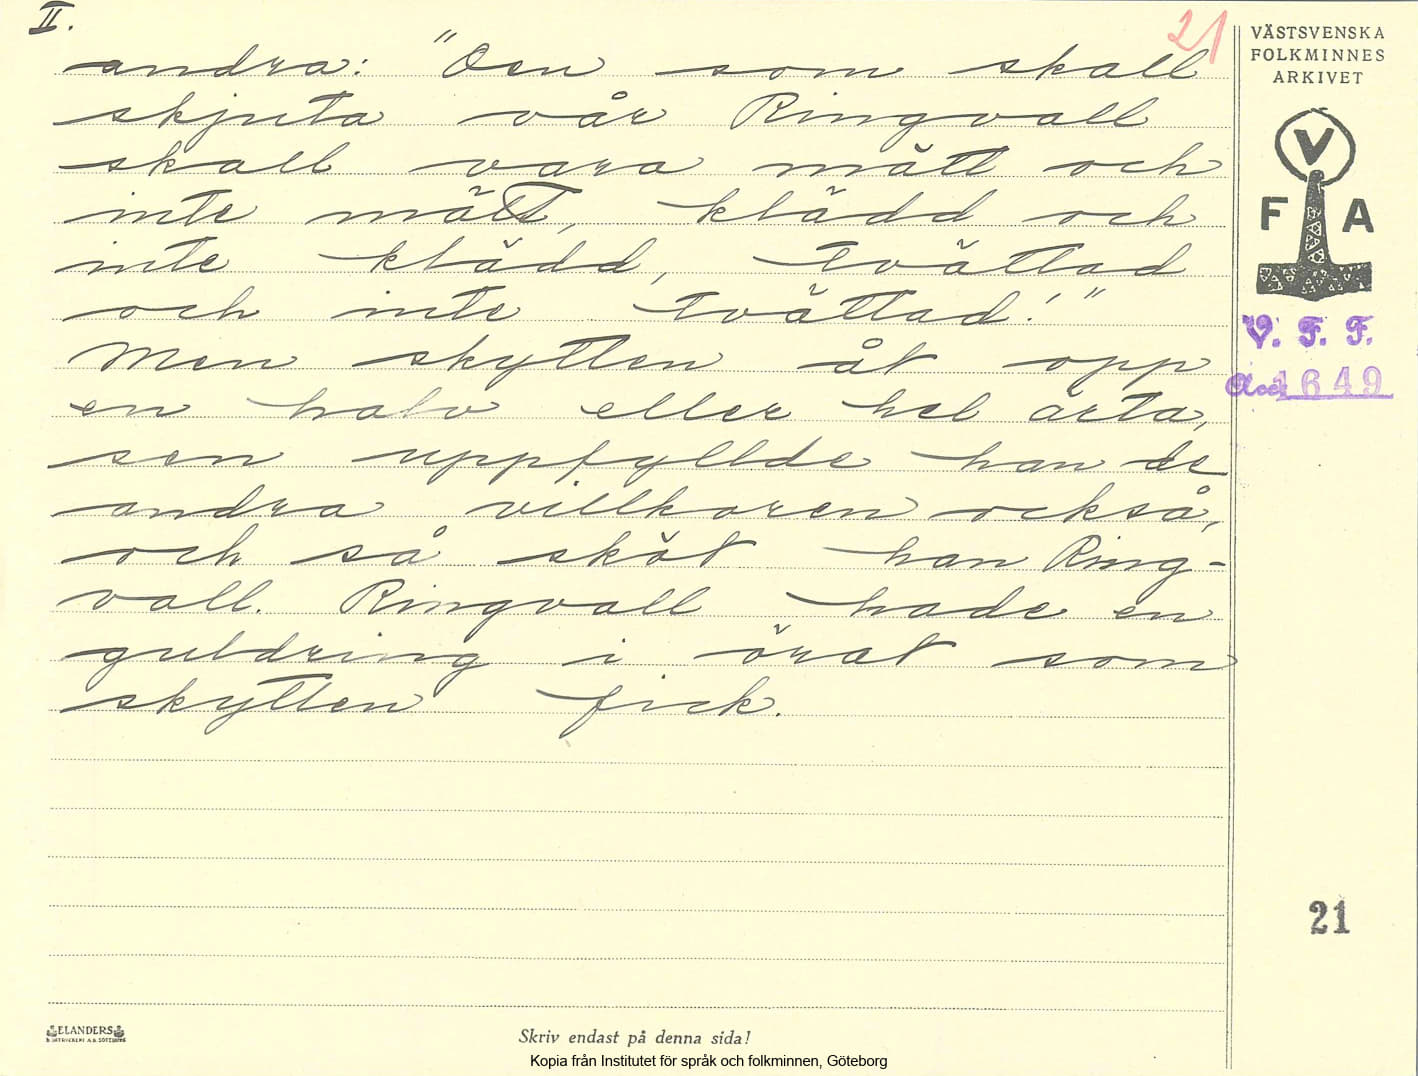 II.
21
andra: "Den som skall
skjuta vår Ringvall
skall vara mätt och
inte mätt, klädd och
inte klädd, tvättad
och inte tvättad!"
Men skytten åt opp
en halv eller hel ärta,
sen uppfyllde han de
andra villkoren också,
och så sköt han Ring-
vall. Ringvall hade en
guldring i örat som
skytten fick.
VÄSTSVENSKA
FOLKMINNES
ARKIVET
V
F A
V. F. F.
Acc. 1649
21
ELANDERS
Skriv endast på denna sida!
Kopia från Institutet för språk och folkminnen, Göteborg